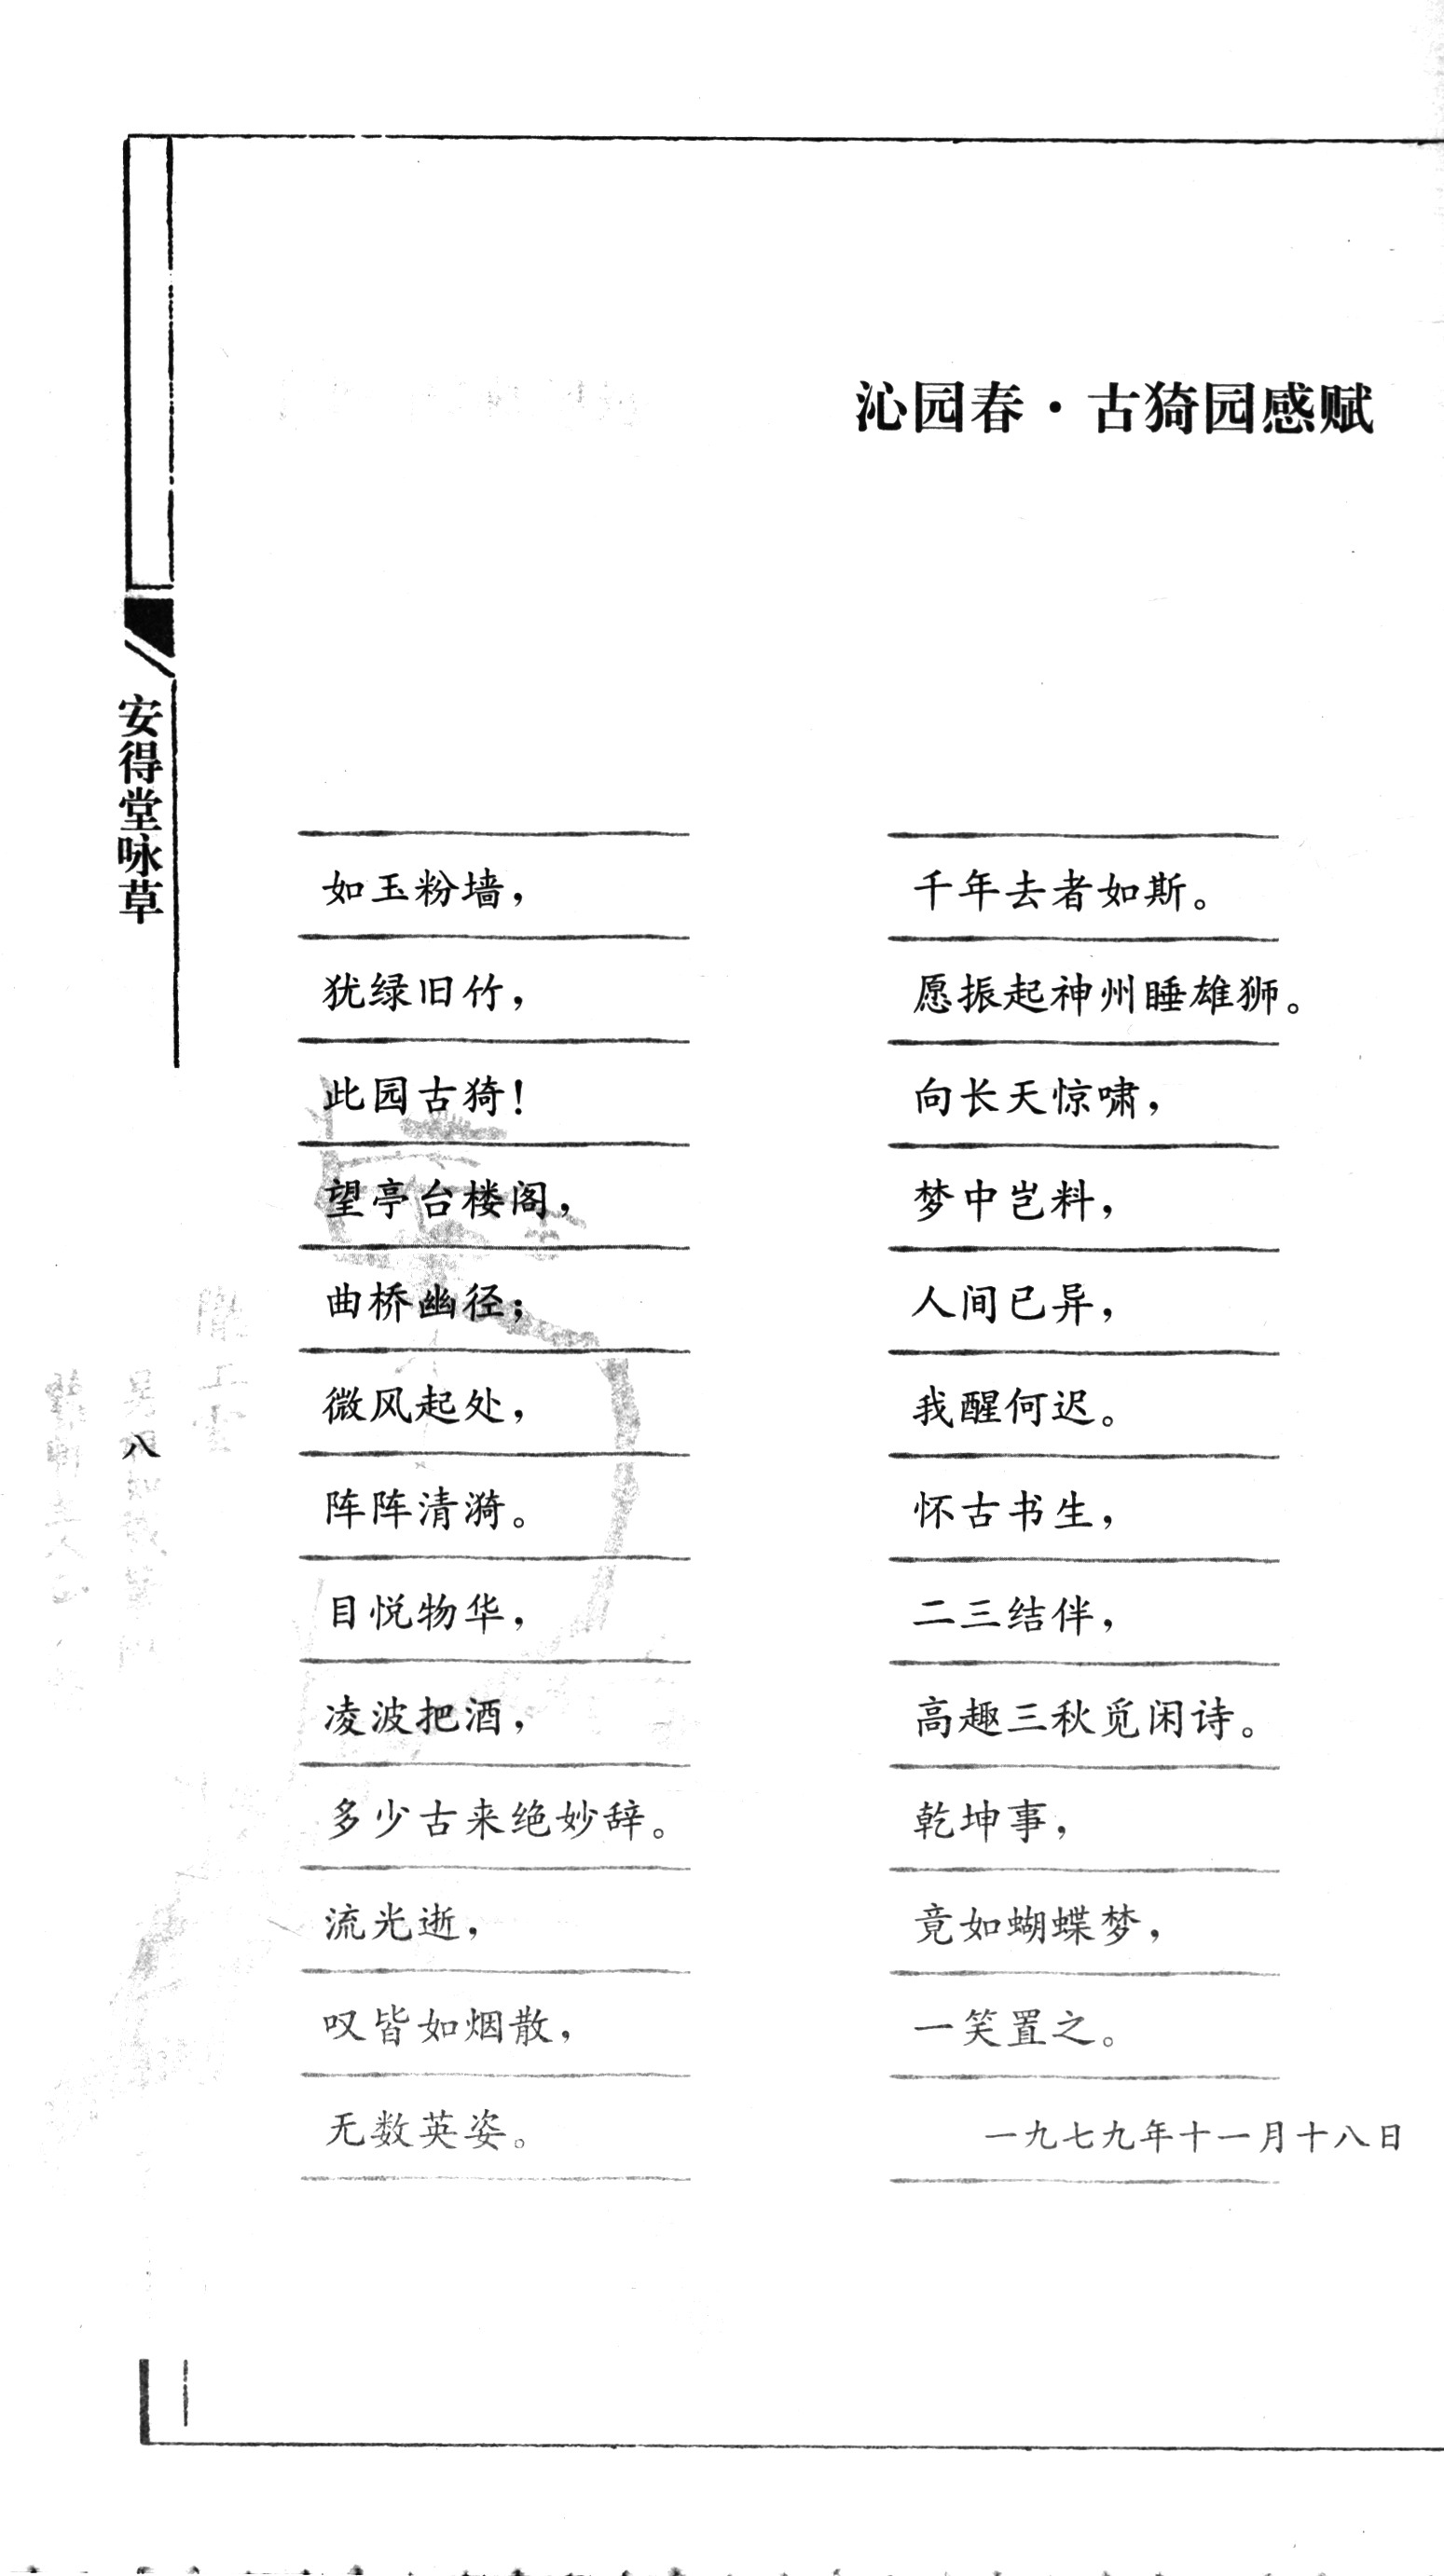 沁园春·古猗园感赋
如玉粉墙，
犹绿旧竹，
此园古猗！
望亭台楼阁，
曲桥幽径；
微风起处，
阵阵清漪。
目悦物华，
凌波把酒，
多少古来绝妙辞。
流光逝，
叹皆如烟散，
无数英姿。
千年去者如斯。
愿振起神州睡雄狮。
向长天惊啸，
梦中岂料，
人间已异，
我醒何迟。
怀古书生，
二三结伴，
高趣三秋觅闲诗。
乾坤事，
竟如蝴蝶梦，
一笑置之。
一九七九年十一月十八日
安得堂咏草
八